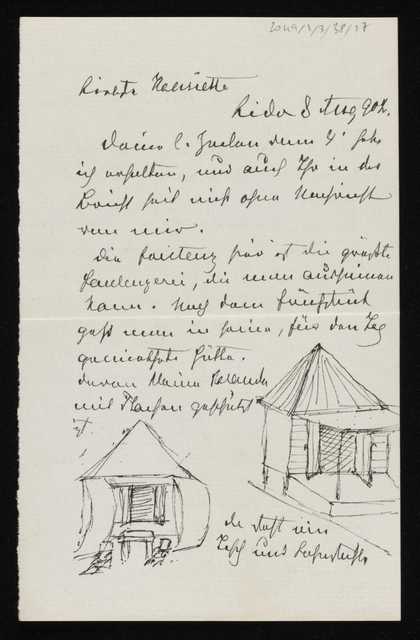 Liebste Henriette
Lido 8 Aug 902.
Deine l. Zeilen vom 4' habe
ich erhalten, und auch Ihr in der
seid nicht ohne Nachricht
von mir.
Die Existenz hier ist die größte
Faulenzerei, die man aussinnen
kann. Nach dem Frühstück
geht man in seine, für den Tag
gemiethete Hütte.
deren kleine Veranda
mit Flachen geschützt
ist.
da steht ein
Tisch und